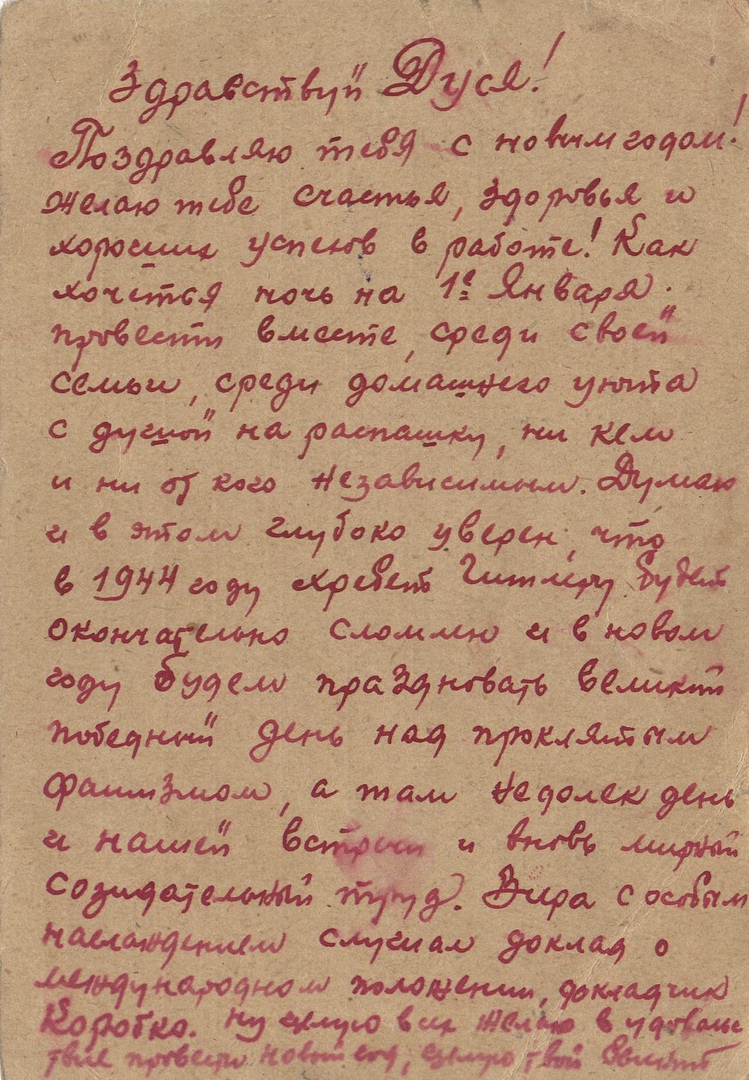 Здравствуй Дуся!
Поздравляю тебя с новым годом!
Желаю тебе счастья, здоровья и
хороших успехов в работе! Как
хочется ночь на 1е Января.
провести вместе, среди своей
семьи, среди домашнего уюта
с душой на распашку, ни кем
и ни от кого независимым. Думаю
и в этом глубоко уверен, что
в 1944 году хребет Гитлеру будет
окончательно сломлен и в новом
году будем праздновать великий
победный день над проклятым
фашизмом, а там недолек день
и нашей встречи и вновь мирный
созидательный труд. Вчера с особым
наслаждением слушал доклад о
международном положении, докладчик
Коротко. Ну целую всех желаю в удоволь
ствие провести новый год, целую твой